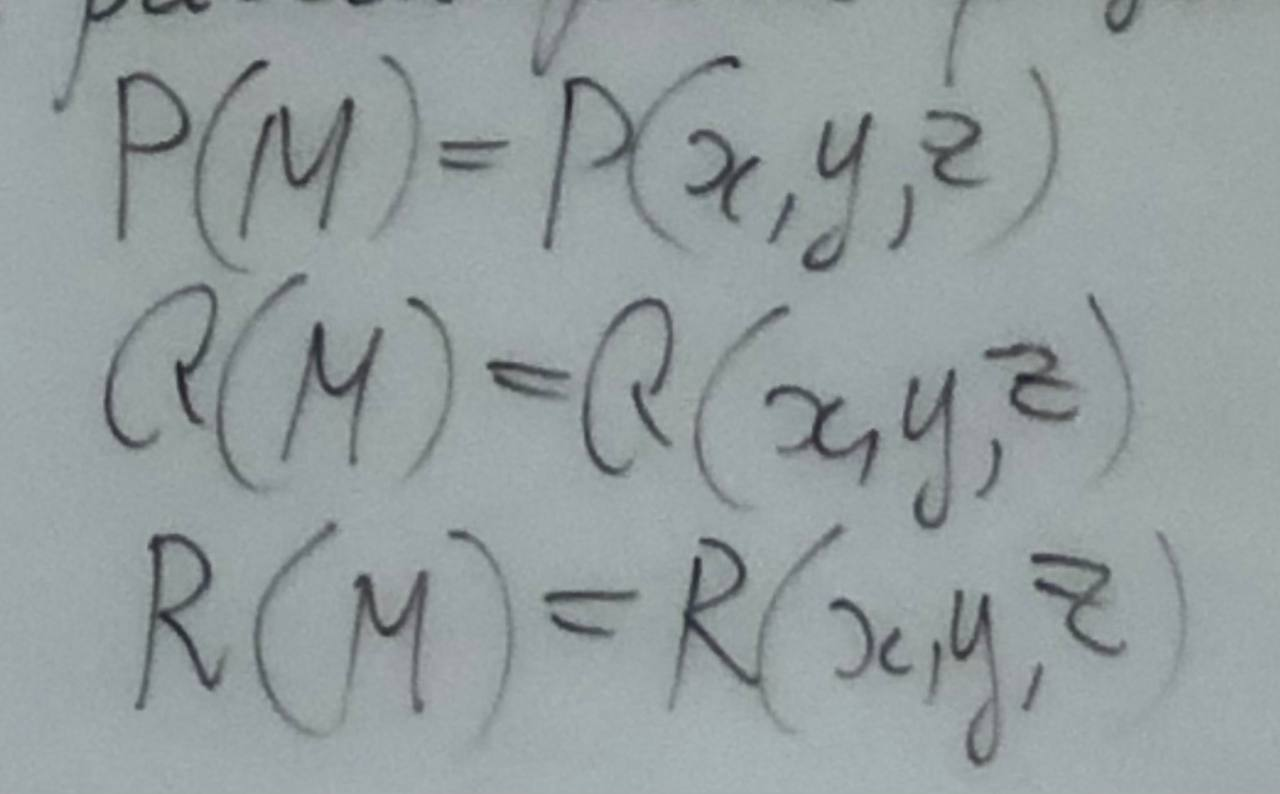 P(M) = P(x, y, z)
Q(M) = Q(x, y, z)
R(M) = R(x, y, z)